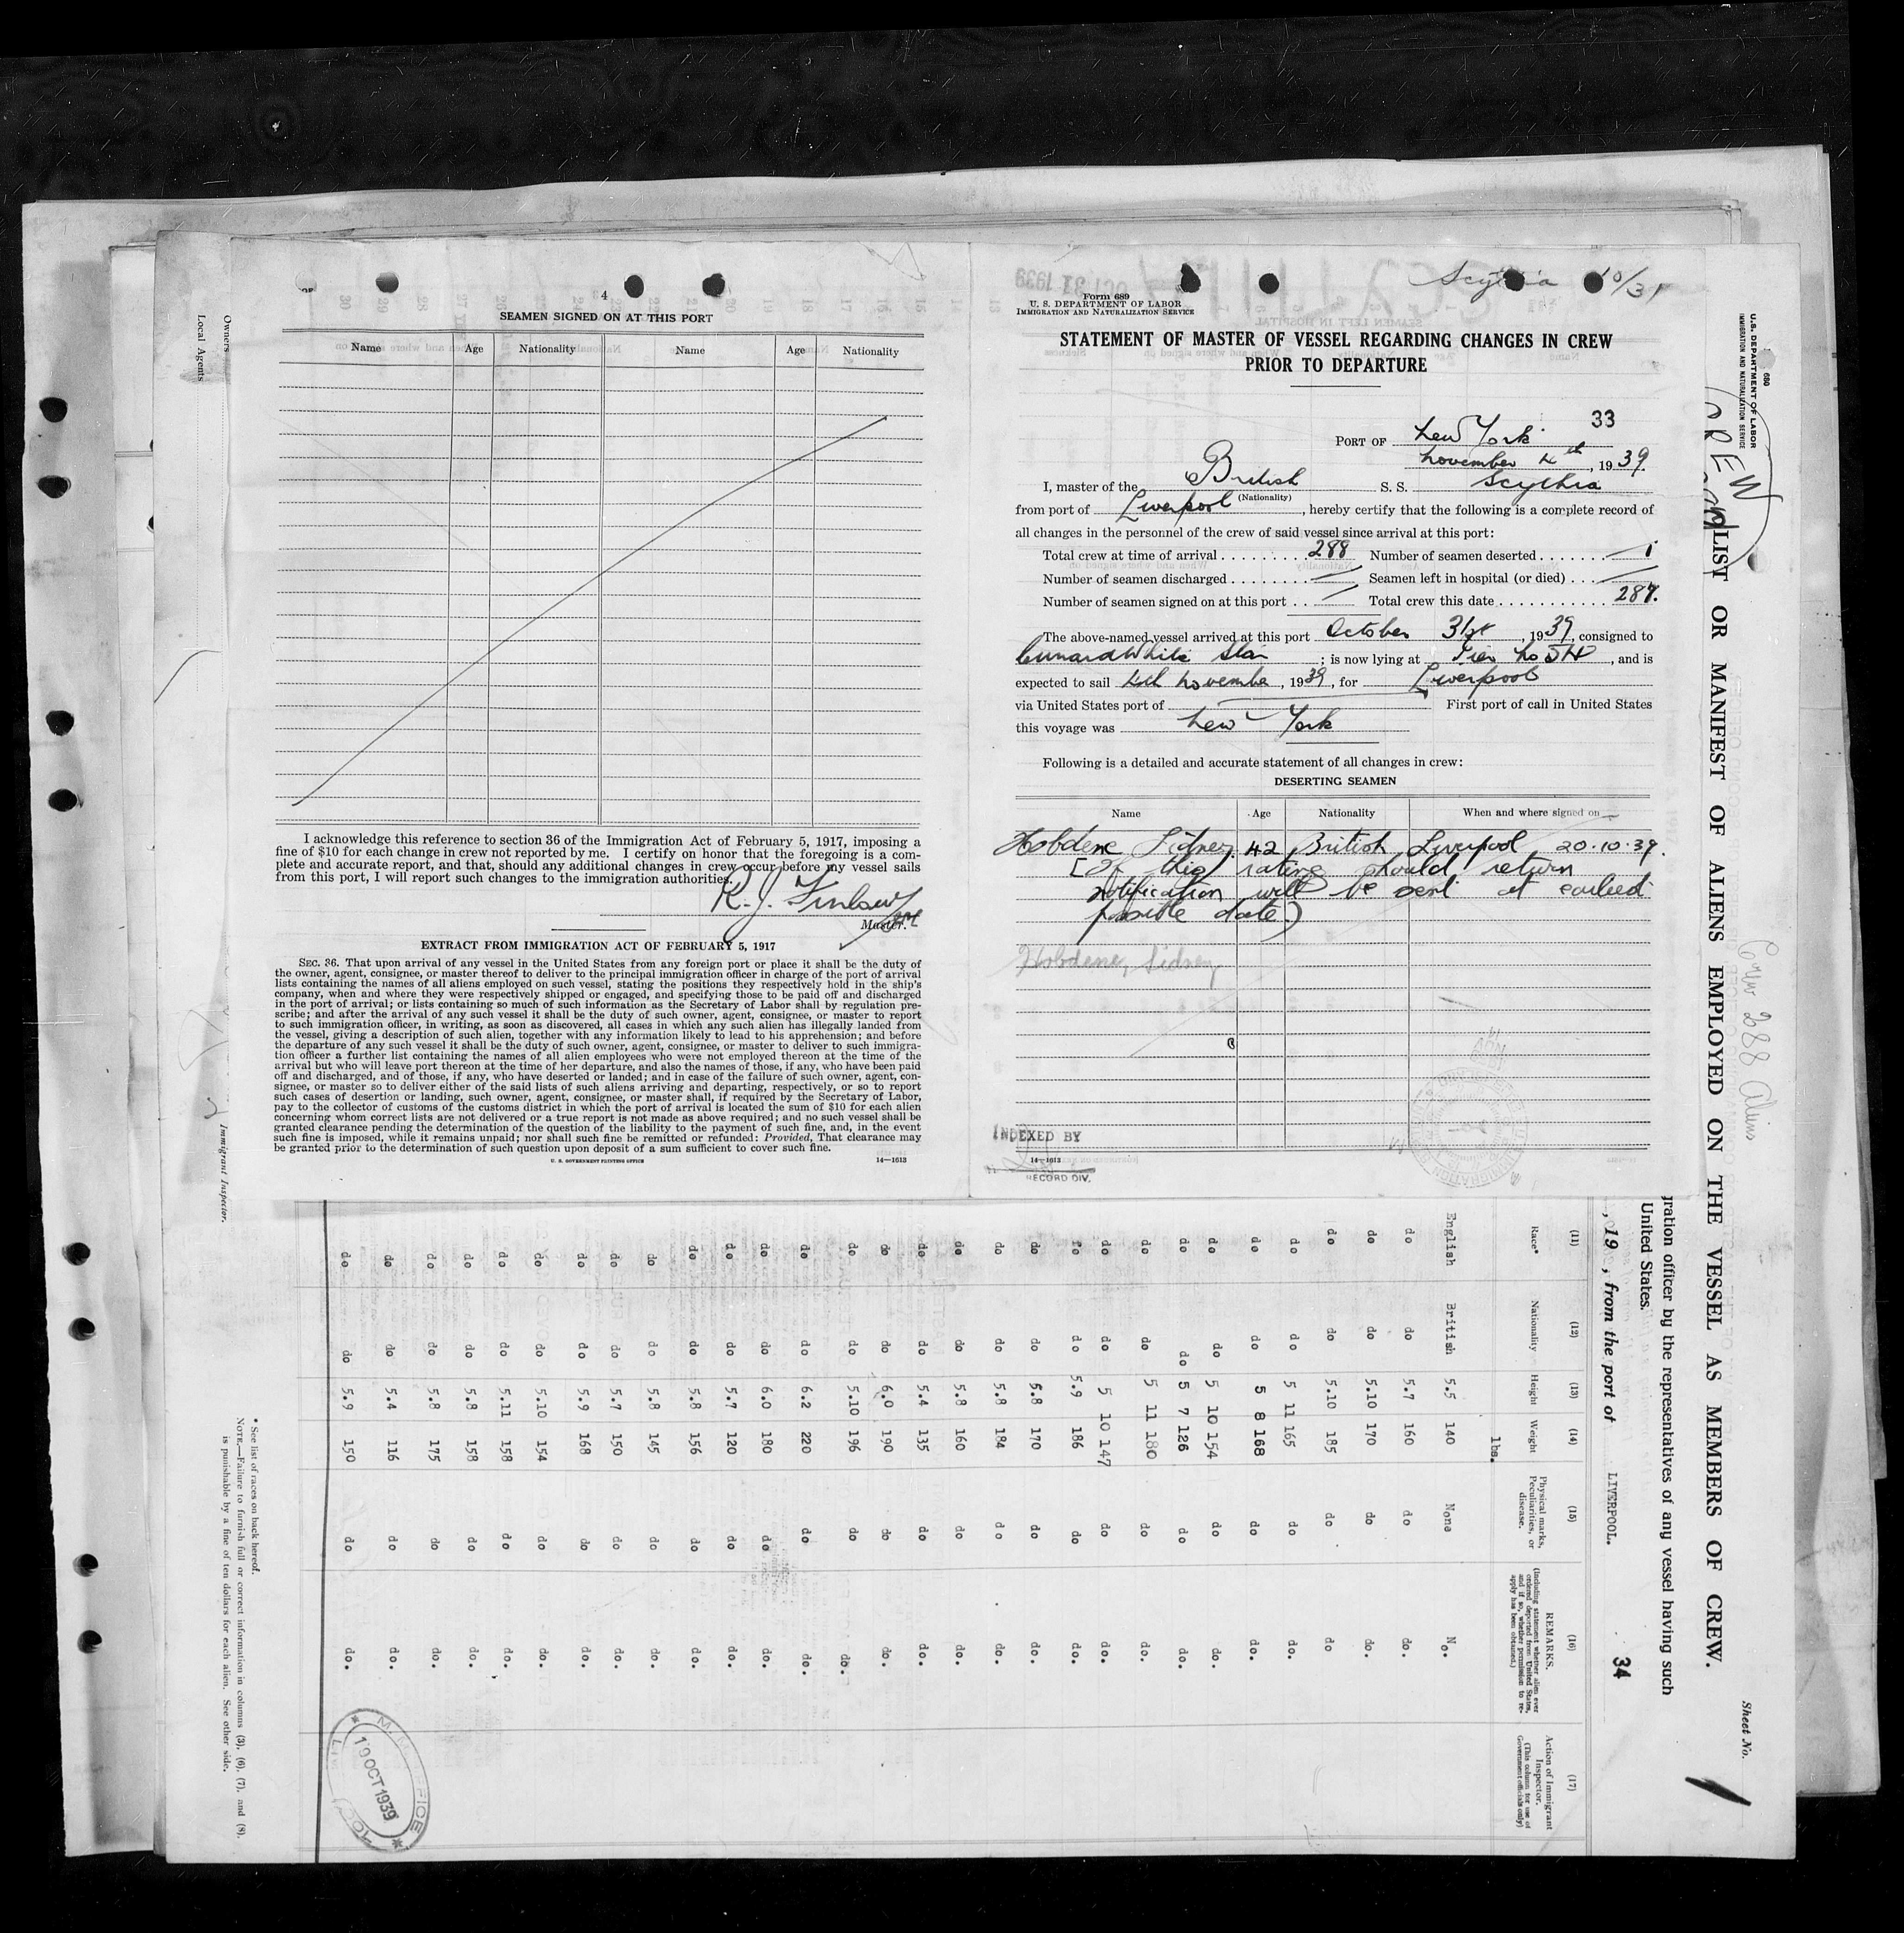 4
SEAMEN SIGNED ON AT THIS PORT
Name Age Nationality Name Age Nationality
I acknowledge this reference to section 36 of the Immigration Act of February 5, 1917, imposing a
fine of $10 for each change in crew not reported by me. I certify on honor that the foregoing is a com-
plete and accurate report, and that, should any additional changes in crew occur before my vessel sails
from this port, I will report such changes to the immigration authorities.
R. J.
Master.
EXTRACT FROM IMMIGRATION ACT OF FEBRUARY 5, 1917
SEC. 36. That upon arrival of any vessel in the United States from any foreign port or place it shall be the duty of
the owner, agent, consignee, or master thereof to deliver to the principal immigration officer in charge of the port of arrival
lists containing the names of all aliens employed on such vessel, stating the positions they respectively hold in the ship's
company, when and where they were respectively shipped or engaged, and specifying those to be paid off and discharged
in the port of arrival; or lists containing so much of such information as the Secretary of Labor shall by regulation pre-
scribe; and after the arrival of any such vessel it shall be the duty of such owner, agent, consignee, or master to report
to such immigration officer, in writing, as soon as discovered, all cases in which any such alien has illegally landed from
the vessel, giving a description of such alien, together with any information likely to lead to his apprehension; and before
the departure of any such vessel it shall be the duty of such owner, agent, consignee, or master to deliver to such immigra-
tion officer a further list containing the names of all alien employees who were not employed thereon at the time of the
arrival but who will leave port thereon at the time of her departure, and also the names of those, if any, who have been paid
off and discharged, and of those, if any, who have deserted or landed; and in case of the failure of such owner, agent, con-
signee, or master so to deliver either of the said lists of such aliens arriving and departing, respectively, or so to report
such cases of desertion or landing, such owner, agent, consignee, or master shall, if required by the Secretary of Labor,
pay to the collector of customs of the customs district in which the port of arrival is located the sum of $10 for each alien
concerning whom correct lists are not delivered or a true report is not made as above required; and no such vessel shall be
granted clearance pending the determination of the question of the liability to the payment of such fine, and, in the event
such fine is imposed, while it remains unpaid; nor shall such fine be remitted or refunded: Provided, That clearance may
be granted prior to the determination of such question upon deposit of a sum sufficient to cover such fine.
U. S. GOVERNMENT PRINTING OFFICE 14—1613
Scythia 10/31
Form 689
U. S. DEPARTMENT OF LABOR
IMMIGRATION AND NATURALIZATION SERVICE
STATEMENT OF MASTER OF VESSEL REGARDING CHANGES IN CREW
PRIOR TO DEPARTURE
33
PORT OF New York
November 4th, 1939.
I, master of the British S. S. Scythia
(Nationality)
from port of Liverpool, hereby certify that the following is a complete record of
all changes in the personnel of the crew of said vessel since arrival at this port:
Total crew at time of arrival 288 Number of seamen deserted 1
Number of seamen discharged — Seamen left in hospital (or died) —
Number of seamen signed on at this port — Total crew this date 287.
The above-named vessel arrived at this port October 31st, 1939, consigned to
Cunard White Star; is now lying at Pier No 54, and is
expected to sail 4th November, 1939, for Liverpool
via United States port of — First port of call in United States
this voyage was New York
Following is a detailed and accurate statement of all changes in crew:
DESERTING SEAMEN
Name Age Nationality When and where signed on
Hobdene Sidney 42 British Liverpool 20.10.39.
[If this rating should return
notification will be sent at earliest
possible date)
Hobdene, Sidney
INDEXED BY
14—1613
RECORD DIV.
680
U.S. DEPARTMENT OF LABOR
IMMIGRATION AND NATURALIZATION SERVICE
CREW
LIST OR MANIFEST OF ALIENS EMPLOYED ON THE VESSEL AS MEMBERS OF CREW.
Sheet No.
Crew 288 Aliens
gration officer by the representatives of any vessel having such
United States.
, 19 , from the port of LIVERPOOL.
34
(11) (12) (13) (14) (15) (16) (17)
Race* Nationality Height Weight Physical marks, Peculiarities, or disease. REMARKS. (Including statement whether alien ever ordered deported from United States, and if so, whether permission to reapply has been obtained.) Action of Immigrant Inspector. (This column for use of Government officials only)
lbs.
English British 5.5 140 None No.
do do 5.7 160 do do.
do do 5.10 170 do do.
do do 5.10 185 do do
do do 5 11 165 do do.
do do 5 8 168 do do.
do do 5 10 154 do do.
do do 5 7 126 do do.
do do 5 11 180 do do.
do do 5 10 147 do do.
do do 5.9 186 do do.
do do 5.8 170 do do.
do do 5.8 184 do do.
do do 5.8 160 do do.
do do 5.4 135 do do.
do do 6.0 190 do do.
do do 5.10 196 do do.
do do 6.2 220 do do.
do do 6.0 180 do do.
do do 5.7 120 do do.
do do 5.8 156 do do.
do do 5.8 145 do do.
do do 5.7 150 do do.
do do 5.9 168 do do.
do do 5.10 154 do do.
do do 5.11 158 do do.
do do 5.8 158 do do.
do do 5.8 175 do do.
do do 5.4 116 do do.
do do 5.9 150 do do.
19 OCT 1939
* See list of races on back hereof.
NOTE.—Failure to furnish full or correct information in columns (3), (6), (7), and (8),
is punishable by a fine of ten dollars for each alien. See other side.
Owners
Local Agents
Immigrant Inspector.